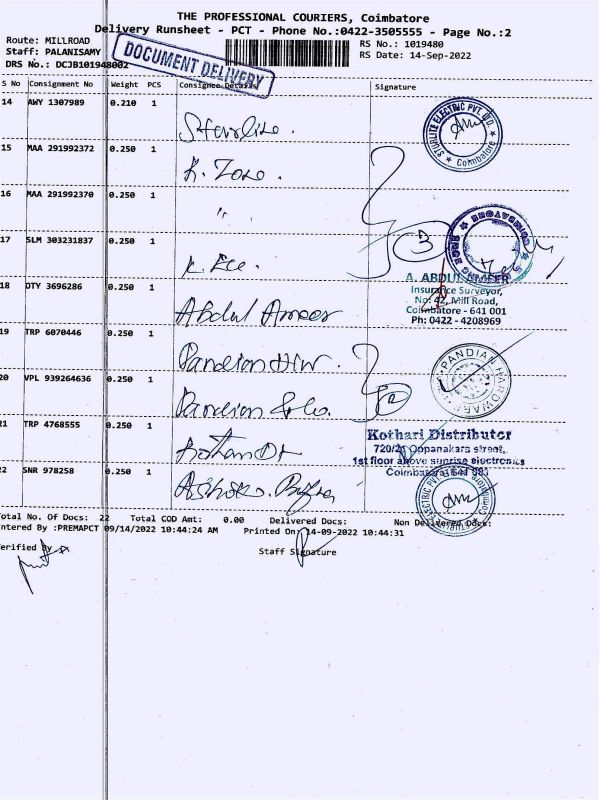 THE PROFESSIONAL COURIERS, Coimbatore
Delivery Runsheet - PCT - Phone No.:0422-3505555 - Page No.:2
Route: MILLROAD
Staff: PALANISAMY
DRS No.: DCJB101948002
DOCUMENT DELIVERY
RS No.: 1019480
RS Date: 14-Sep-2022
S No Consignment No Weight PCS Consignee Details Signature
14 AWY 1307989 0.210 1
STURLITE ELECTRIC PVT. LTD.
Coimbatore
15 MAA 291992372 0.250 1
K. Zone.
16 MAA 291992370 0.250 1
"
17 SLM 303231837 0.250 1
3
18 DTY 3696286 0.250 1
Abdul Ameer
A. ABDUL AMEER
Insurance Surveyor,
No: 42, Mill Road,
Coimbatore - 641 001
Ph: 0422 - 4208969
19 TRP 6070446 0.250 1
Pandian H/W.
PANDIAN HARDWARE
20 VPL 939264636 0.250 1
Pandian & Co.
2
21 TRP 4768555 0.250 1
Kothari Dt
Kothari Distributor
720/21 Oppanakara street,
1st floor above sunrise electronics
Coimbatore 641 001
22 SNR 978258 0.250 1
Total No. Of Docs: 22 Total COD Amt: 0.00 Delivered Docs: Non Delivered Docs:
Entered By :PREMAPCT 09/14/2022 10:44:24 AM Printed On: 14-09-2022 10:44:31
Verified By
Staff Signature